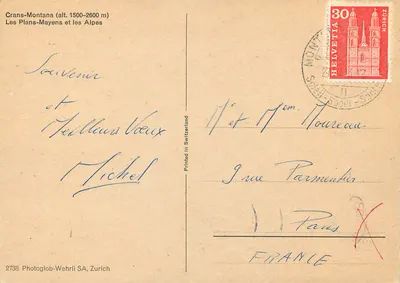 Crans-Montana (alt. 1500-2600 m)
Les Plans-Mayens et les Alpes
Souvenir
et
Meilleurs Vœux
Michel
Printed in Switzerland
30
HELVETIA
ZÜRICH
M et Mme Moureau
9 rue Parmentier
Paris
FRANCE
2735 Photoglob-Wehrli SA, Zurich